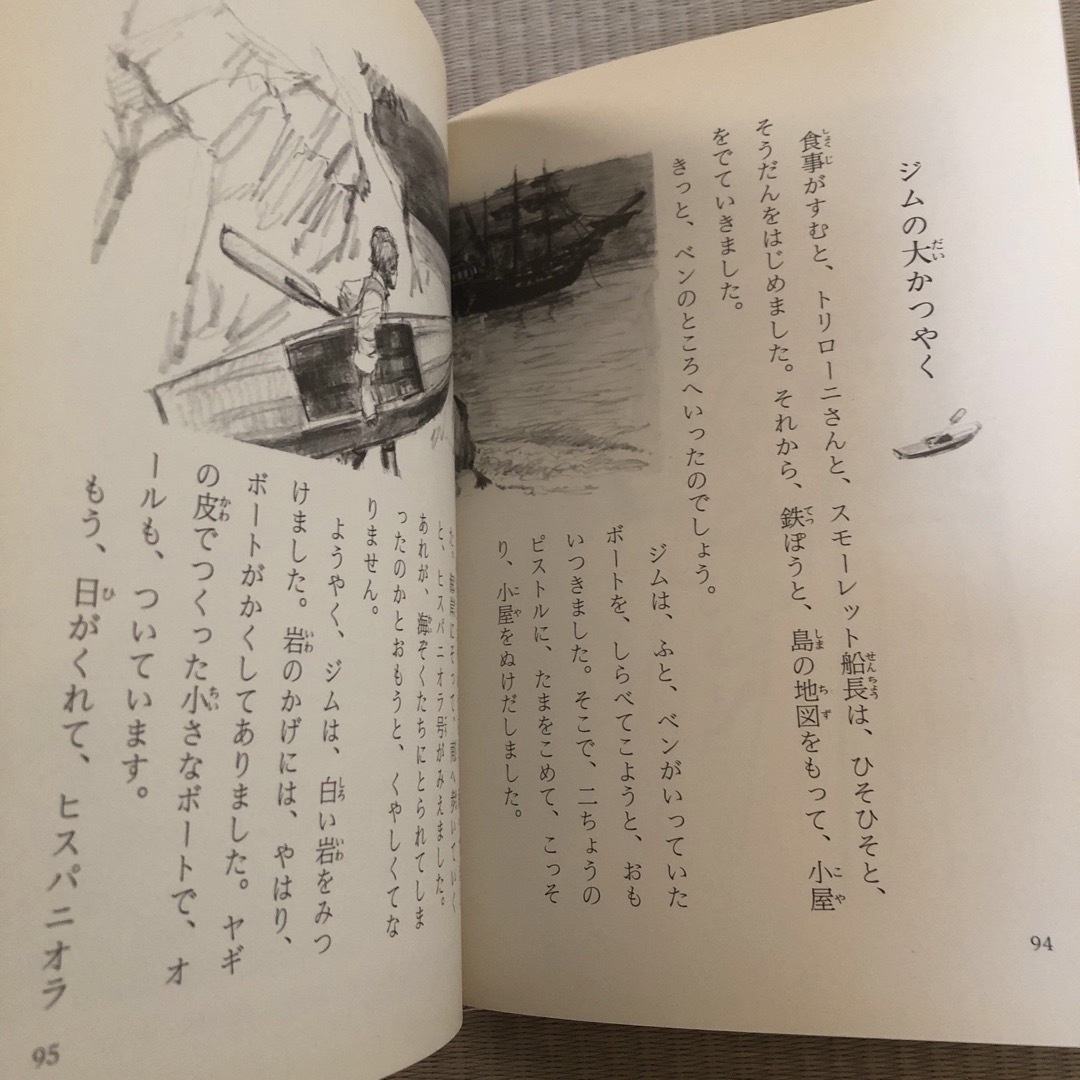 ジムの大かつやく
食事がすむと、トリローニさんと、スモーレット船長は、ひそひそと、
そうだんをはじめました。それから、鉄ぽうと、島の地図をもって、小屋
をでていきました。
きっと、ベンのところへいったのでしょう。
ジムは、ふと、ベンがいっていた
ボートを、しらべてこようと、おも
いつきました。そこで、二ちょうの
ピストルに、たまをこめて、こっそ
り、小屋をぬけだしました。
94
にそって、南へ歩いていく
と、ヒスパニオラ号がみえました。
あれが、海ぞくたちにとられてしま
ったのかとおもうと、くやしくてな
りません。
ようやく、ジムは、白い岩をみつ
けました。岩のかげには、やはり、
ボートがかくしてありました。ヤギ
の皮でつくった小さなボートで、オ
ールも、ついています。
もう、日がくれて、ヒスパニオラ
95